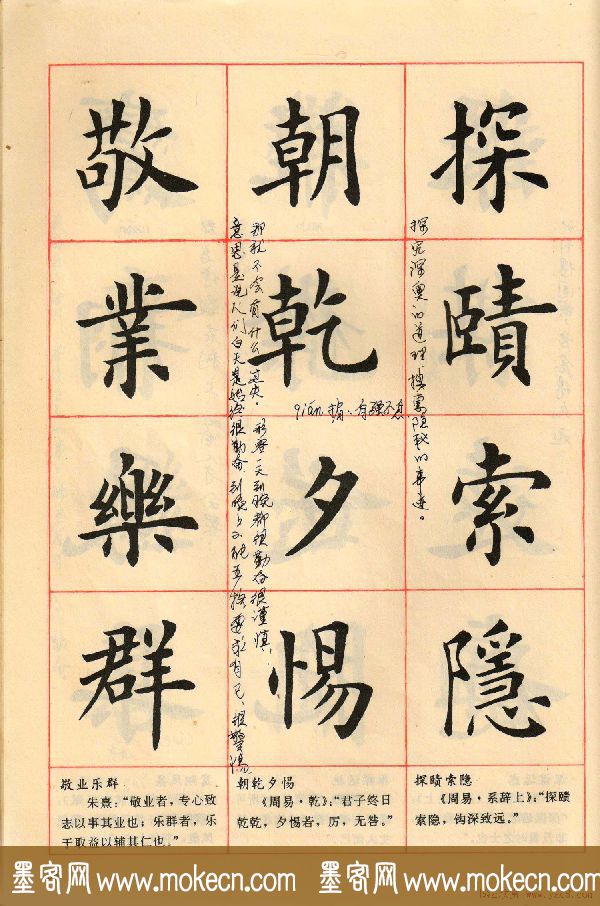 探
賾
索
隱
朝
乾
夕
惕
敬
業
樂
群
探究深奥的道理搜索隐秘的事迹。
qián 指:自强不息
那就不会有什么过失。 形容一天到晚都很勤奋很谨慎,
意思是说人们白天是始终很勤奋到晚上
要求自己、很警惕
探赜索隐
《周易·系辞上》:“探赜
索隐,钩深致远。”
朝乾夕惕
《周易·乾》:“君子终日
乾乾,夕惕若,厉,无咎。”
敬业乐群
朱熹:“敬业者,专心致
志以事其业也;乐群者,乐
于取益以辅其仁也。”
墨客网 www.mokecn.com 墨客网 www.mokecn.com